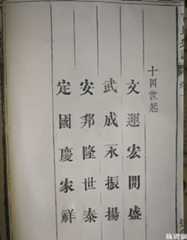 十四世起
文運宏開盛
武成永振揚
安邦隆世泰
定國慶家祥